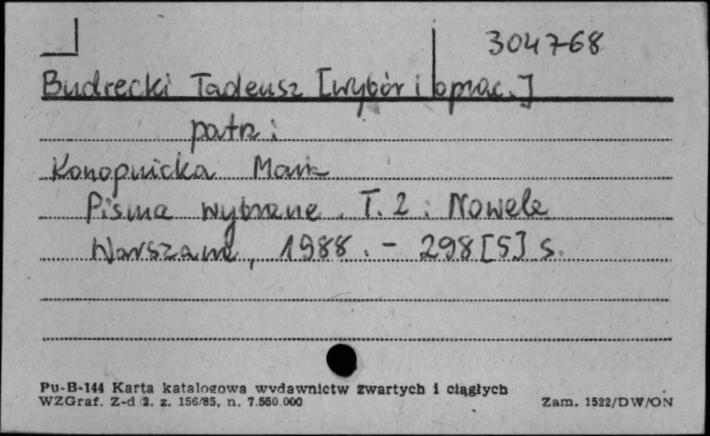 304768
Budrecki Tadeusz [wybór i oprac.]
patrz:
Konopnicka Maria
Pisma wybrane. T. 2: Nowele
Warszawa, 1988. - 298[5] s.
Pu-B-144 Karta katalogowa wydawnictw zwartych i ciągłych
WZGraf. Z-d 2. z. 156/85, n. 7.550.000
Zam. 1522/DW/ON